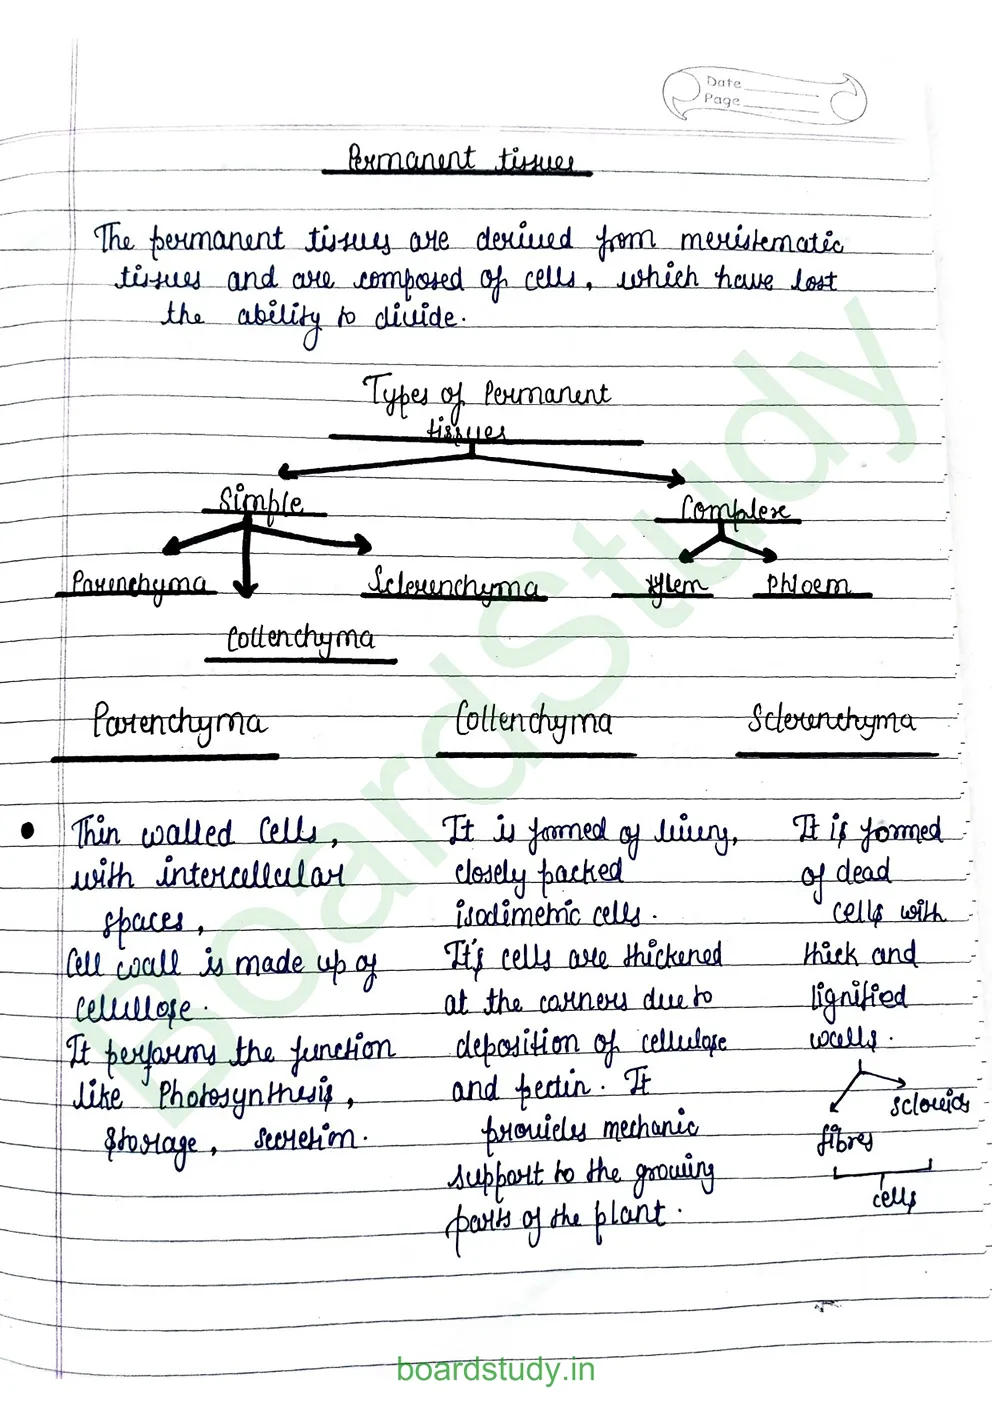 Date
Page
Permanent tissues
The permanent tissues are derived from meristematic
tissues and are composed of cells, which have lost
the ability to divide.
Types of Permanent
tissues
Simple
Complex
Parenchyma
Sclerenchyma
Xylem
Phloem
Collenchyma
Parenchyma
Collenchyma
Sclerenchyma
Thin walled cells,
with intercellular
spaces,
Cell wall is made up of
cellulose.
It performs the function
like Photosynthesis,
storage, secretion.
It is formed of living,
closely packed
isodimetric cells.
It's cells are thickened
at the corners due to
deposition of cellulose
and pectin. It
provides mechanic
support to the growing
parts of the plant.
It is formed
of dead
cells with
thick and
lignified
walls.
sclorids
fibres
cells
BoardStudy
boardstudy.in